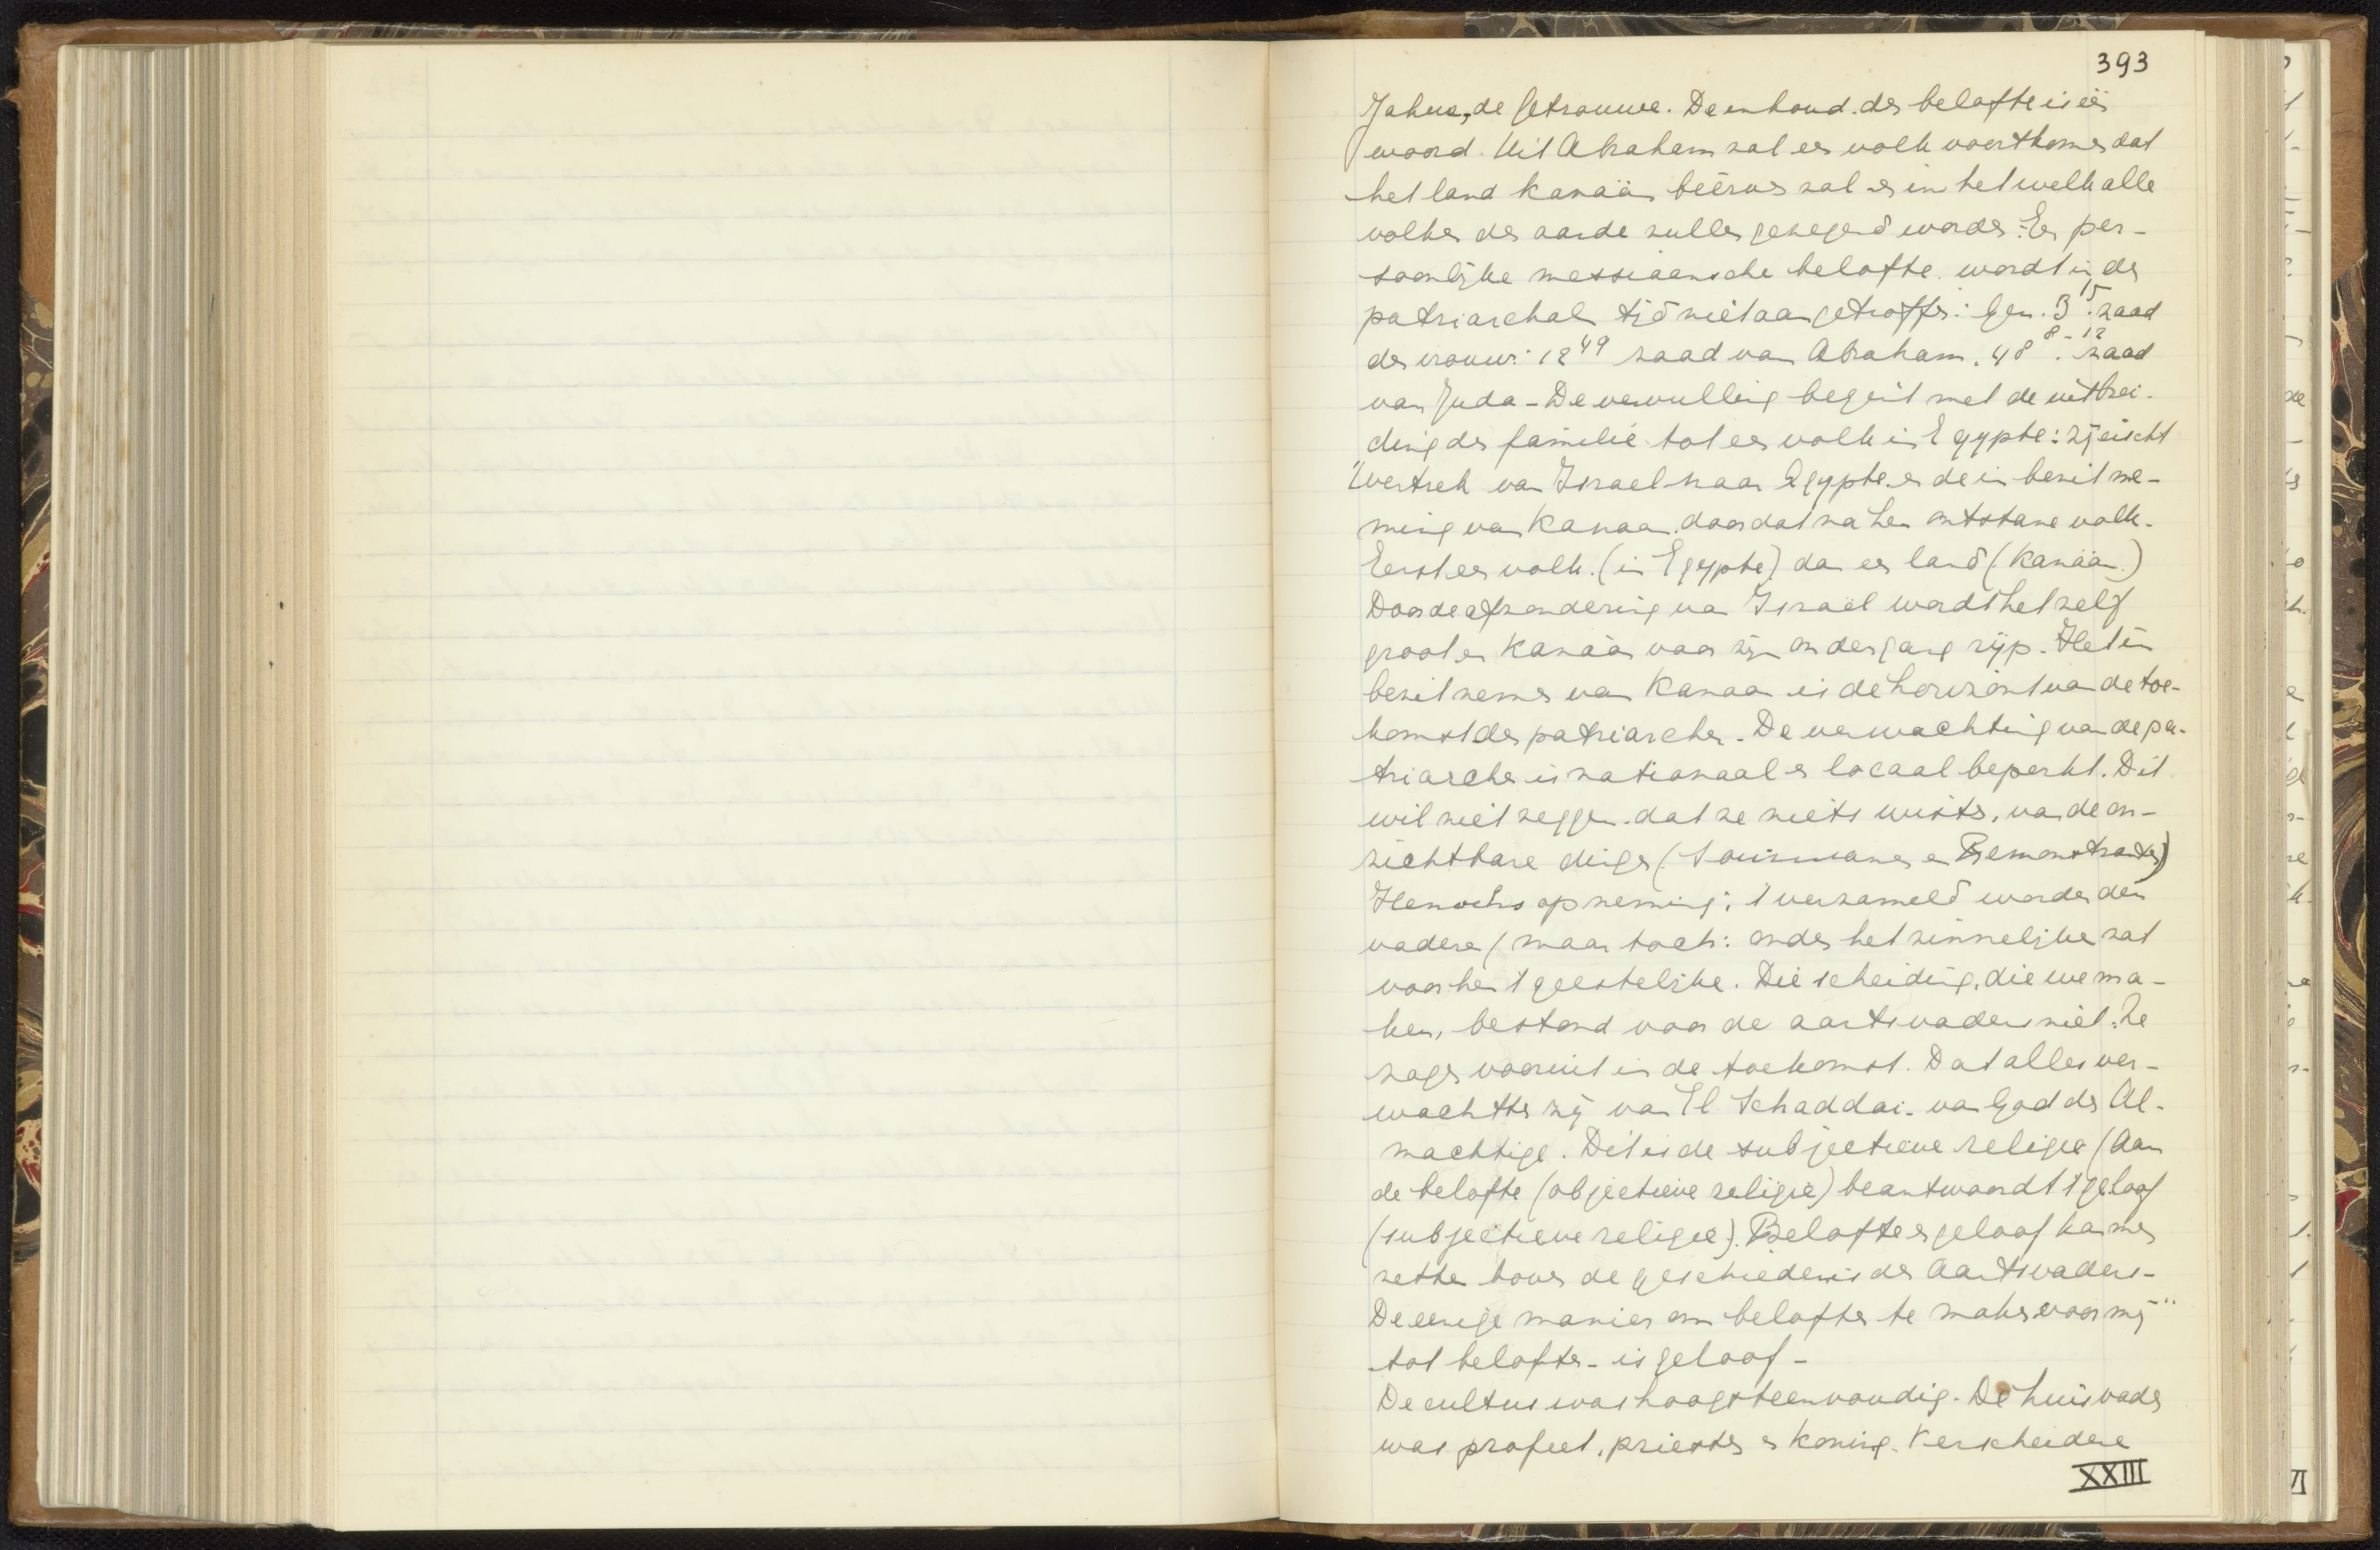 393
Jahwe, de Getrouwe. De inhoud der belofte is één
woord. Uit Abraham zal een volk voortkomen dat
het land Kanaän beërven zal en in hetwelk alle
volken der aarde zullen gezegend worden. Een per-
soonlijke messiaansche belofte wordt in den
patriarchalen tijd niet aangetroffen: Gen. 3 15. zaad
der vrouw: 12 49 zaad van Abraham. 48 8-12. zaad
van Juda - De vervulling begint met de uitbrei-
ding der familie tot een volk in Egypte: zij eischt
't vertrek van Israel naar Egypte en de in bezit ne-
ming van Kanaan door dat na hen ontstane volk.
Eerst een volk. (in Egypte) dan een land (Kanaän.)
Door de afzondering van Israël wordt het zelf
groot en Kanaän voor zijn ondergang rijp. Het in
bezit nemen van Kanaan is de horizont van de toe-
komst der patriarchen. De verwachting van de pa-
triarchen is nationaal en locaal beperkt. Dit
wil niet zeggen dat ze niets wisten, van de on-
zichtbare dingen (Socinianen en Remonstranten)
Henochs opneming: 't verzameld worden den
vaderen (maar toch: onder het zinnelijke zat
voor hen 't geestelijke. Die scheiding, die we ma-
ken, bestond voor de aartsvaders niet. Ze
zagen vooruit in de toekomst. Dat alles ver-
wachtten zij van El Schaddai. van God den Al-
machtige. Dit is de subjectieve religie (Aan
de belofte (objectieve religie) beantwoordt 't geloof
(subjectieve religie). Belofte en geloof kan men
zetten boven de geschiedenis der Aartsvaders -
De eenige manier om beloften te maken voor mij
tot beloften - is geloof -
De cultus was hoogst eenvoudig. De huisvader
was profeet, priester en koning. Verscheidene
XXIII